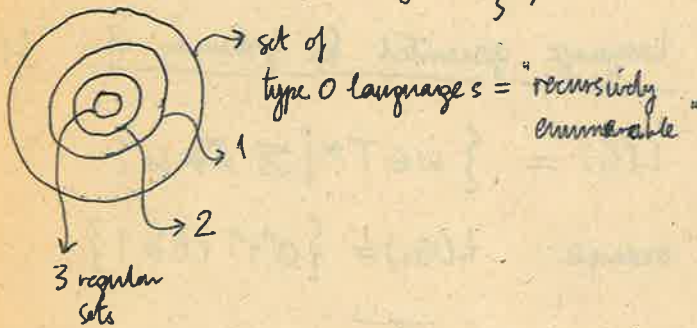 set of
type 0 languages = "recursively
enumerable"
1
2
3 regular
sets